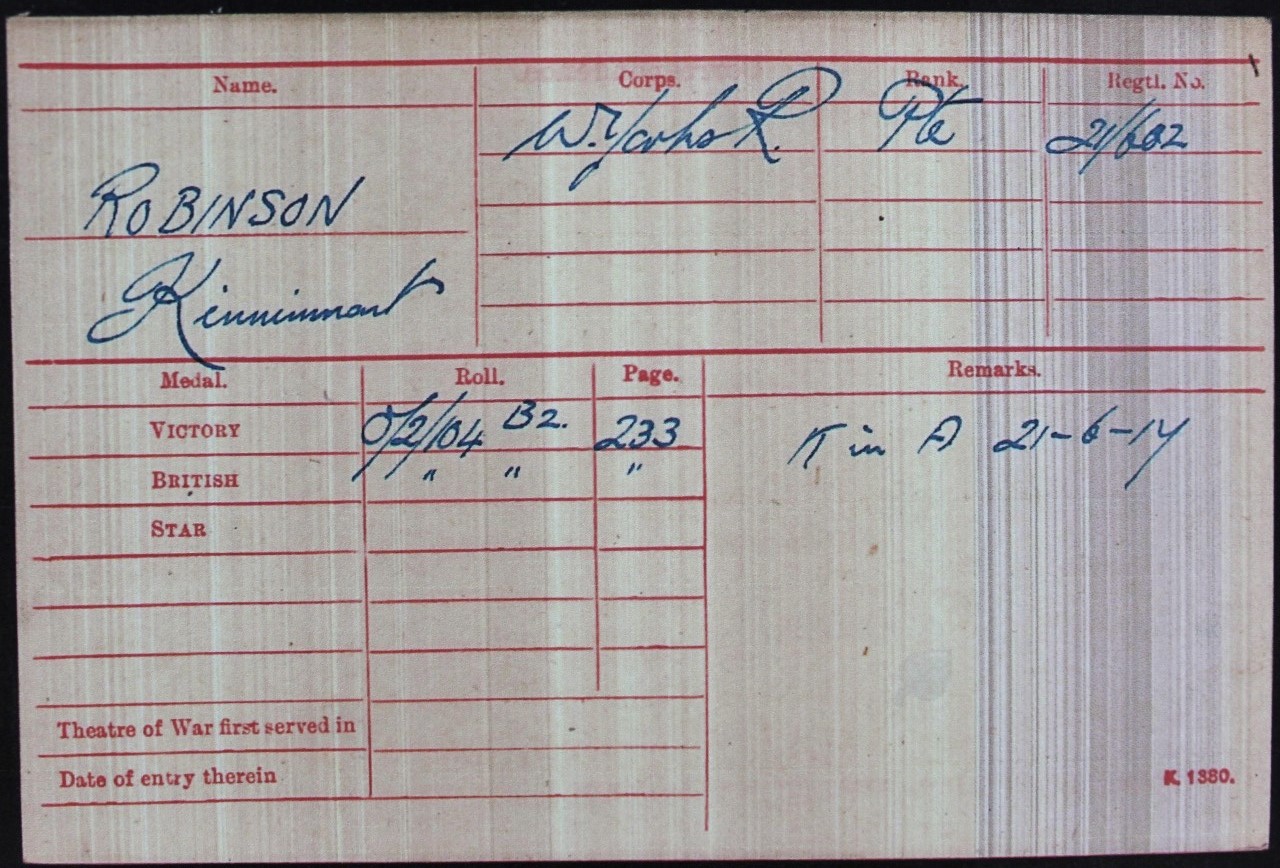 Name. Corps. Rank. Regtl. No.
W. Yorks R. Pte 21/602
ROBINSON
Kinninmont
Medal. Roll. Page. Remarks.
VICTORY O/2/104 B2. 233 K in A 21-6-17
BRITISH " " "
STAR
Theatre of War first served in
Date of entry therein
K. 1380.